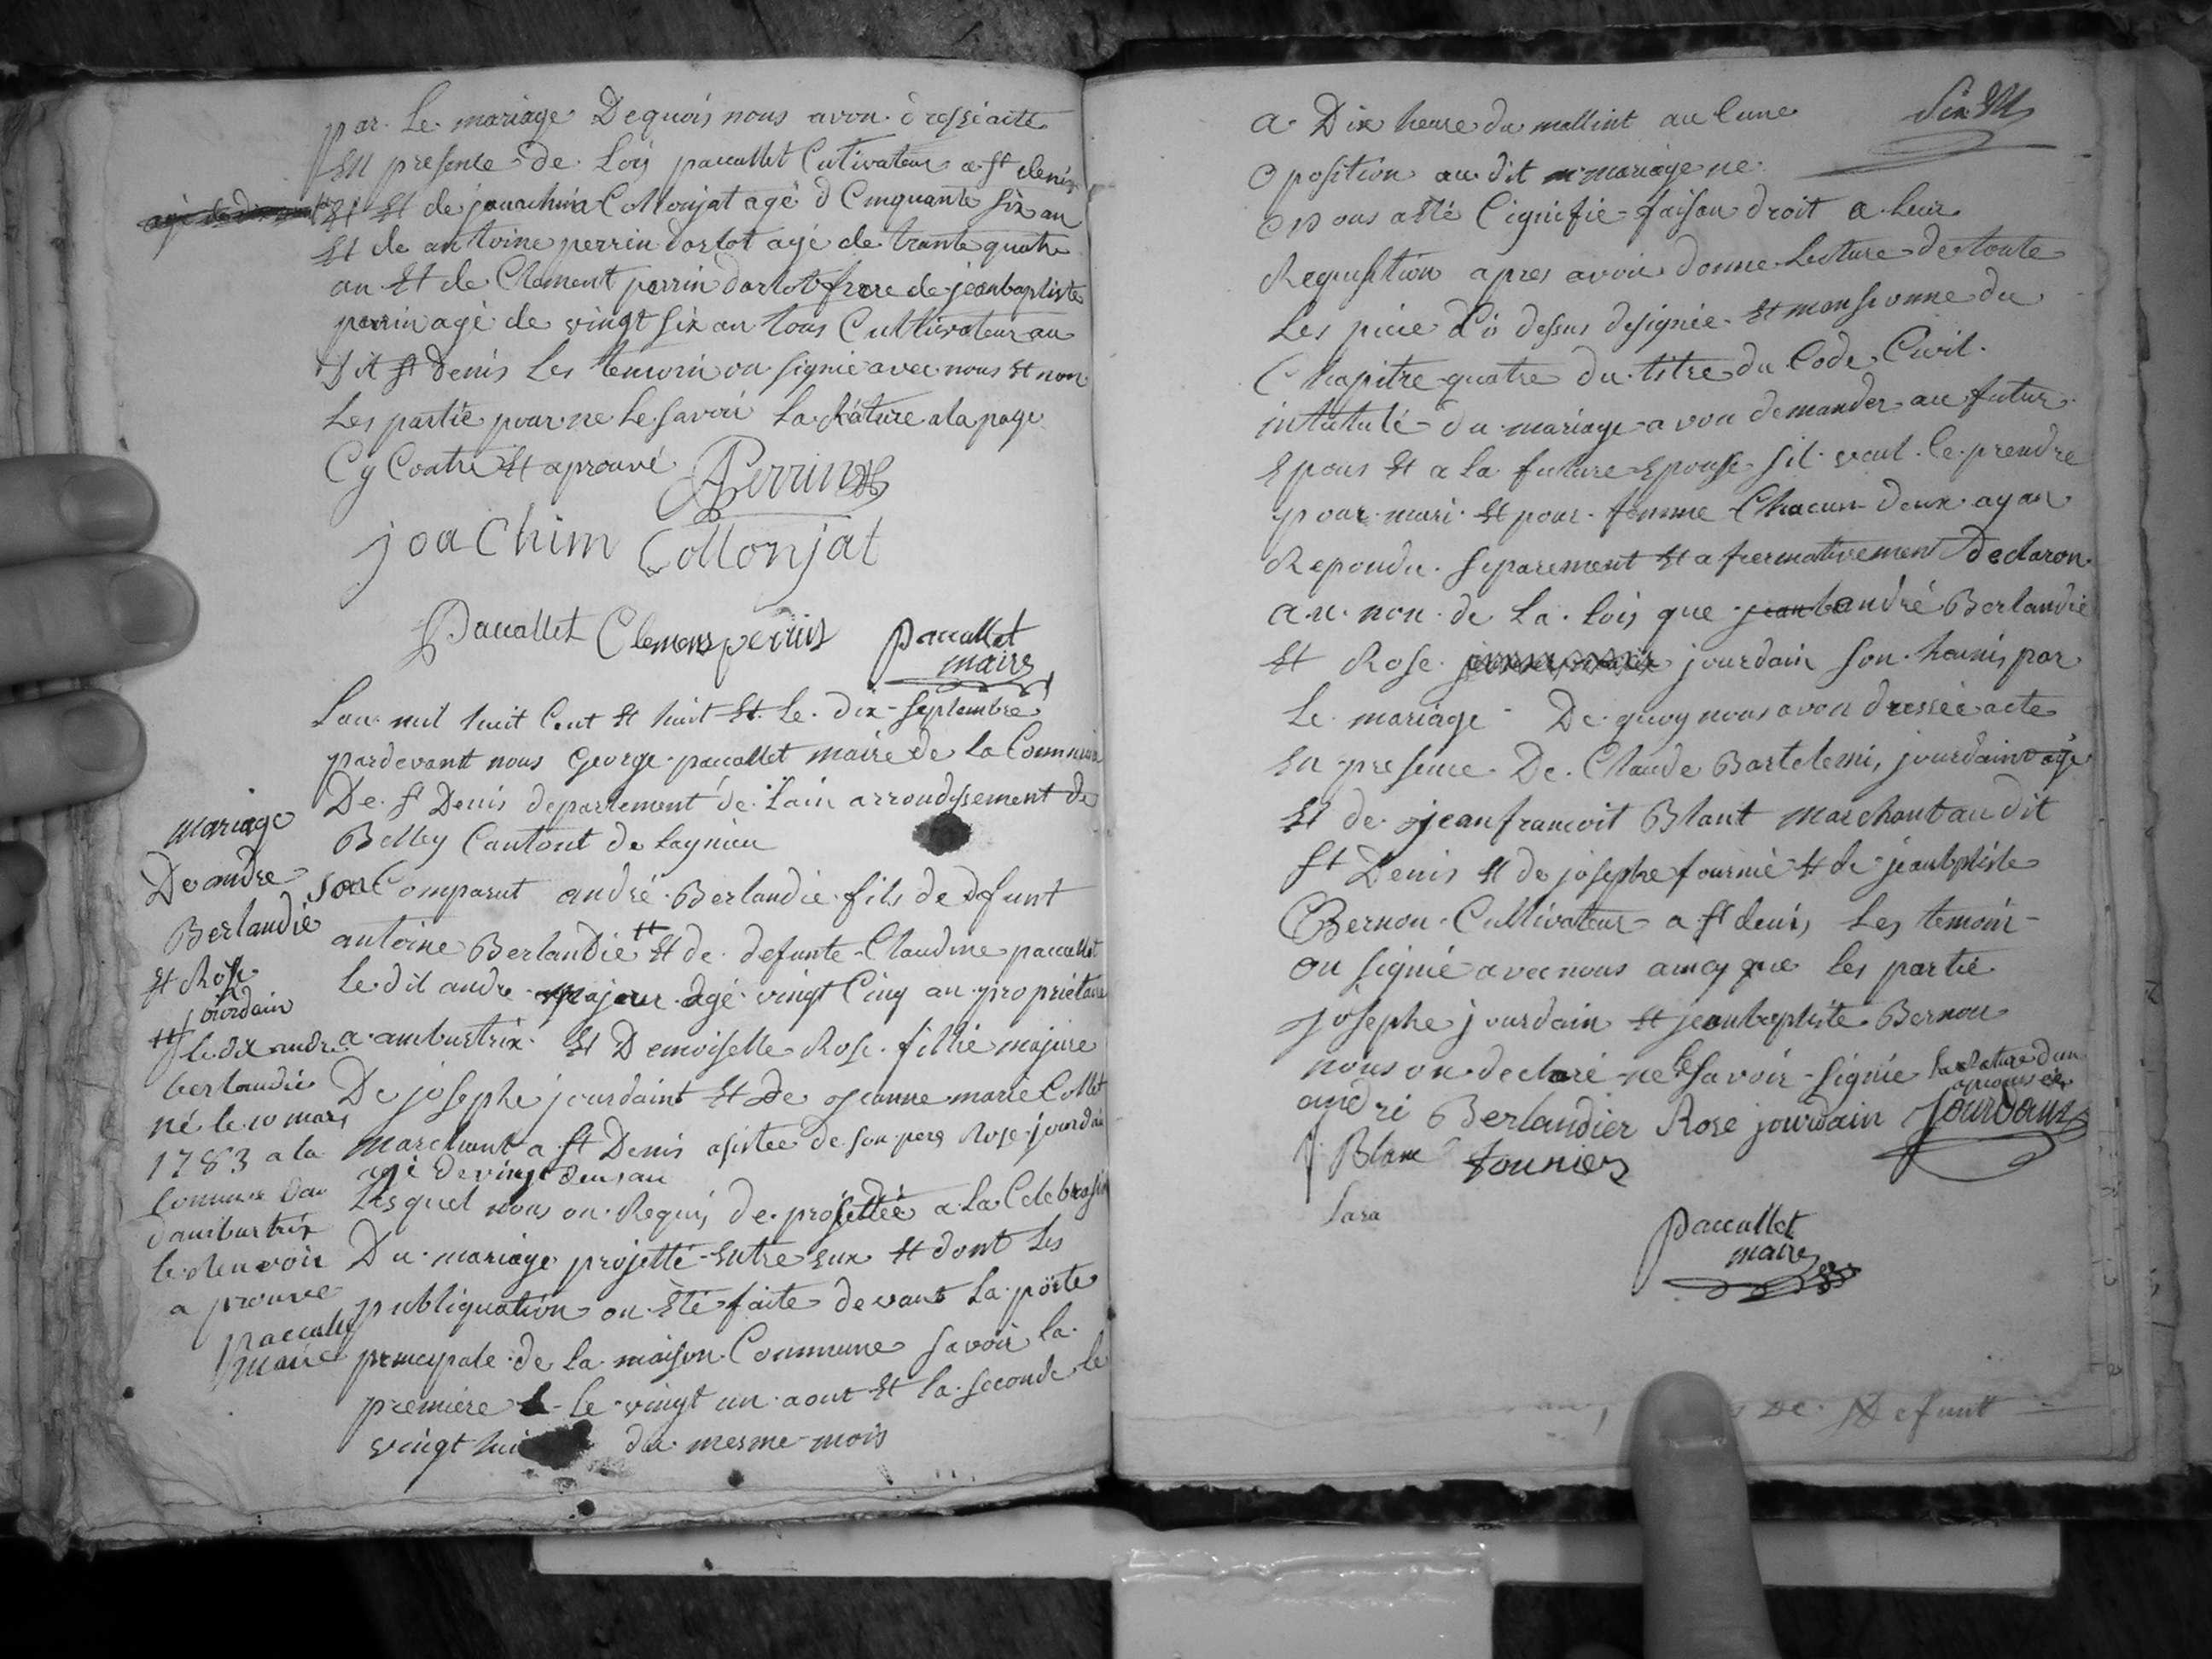 par le mariage Dequois nous avon dressé acte
En presente de Lois paccallet Cutivateur a St denis
Et de jouachim Collonjat agé d Cinquante six an
Et de antoine perrin dorlot agé de trante quatre
an Et de Clement perrin dorlot frere de jeanbaptiste
perrin agé de vingt six an tous Cultivateur au
dit St Denis Les temoin on signié avec nous Et non
Les partie pour ne Le savoir La Rature a la page
Cy Contre Et aprouvé Perrin
joachim Collonjat
Paccallet Clemens perrin paccallet
maire
Lan mil huit Cent Et huit Et Le dix Septembre
pardevant nous George paccallet maire de La Commune
De St Denis departement de Lain arrondissement de
Belley Cantont de Lagnieu
mariage
De andre
Berlandié
Et Rose
jourdain
son Comparut andré Berlandie fils de defunt
antoine Berlandie # Et de defunte Claudine paccallet
le dit andre majeur agé vingt Cinq an propriétaire
a ambutrix Et Demoiselle Rose fillie majure
De josephe jourdaint Et De jeanne marie Collet
marchant a St Denis asistee de son pere Rose jourdain
agé de vingt deux an
Lesquel nous on Requis de projettée a La Celebrasion
Du mariage projetté Entre Eux Et dont Les
publiquation on Eté faite devant La porte
principale de La maison Commune Savoir la
premiere le vingt un aout Et la seconde le
vingt hui du mesme mois
# le dit andre
berlandie
né le 10 mars
1783 a la
Commune
dambutrix
le renvoir
a prouvé
paccallet
maire
Six
a Dix heure du mattint aucune
Oposition au dit mariage ne
nous a Eté Cignifie faisan droit a Leur
Requisition apres avoir donne Lecture de toute
Les piece Ci dessus designée Et mensionne du
Chapitre quatre du titre du Code Civil
intitulé du mariage avon demander au futur
Epous Et a la future Epouse sil veul le prendre
pour mari Et pour femme Chacun deux ayan
Repondu separement Et afirmativement Declaron
au non de La Lois que andré Berlandié
Et Rose jourdain son hunis par
Le mariage De quoy nous avon dressée acte
En presence De Claude Bartelemi jourdain agé
Et de jean francoit Blant marchant au dit
St Denis Et de josephe fournié Et de jeanbptiste
Bernou Cultivateur a St denis Les temoin
on signié avec nous aincy que les partie
josephe jourdain Et jeanbaptiste Bernou
nous on declaré ne le savoir signié la Rature dun
aprouvée
andri Berlandier Rose jourdain Jourdain
J Blanc fournier
Lara
paccallet
maire
De Defunt